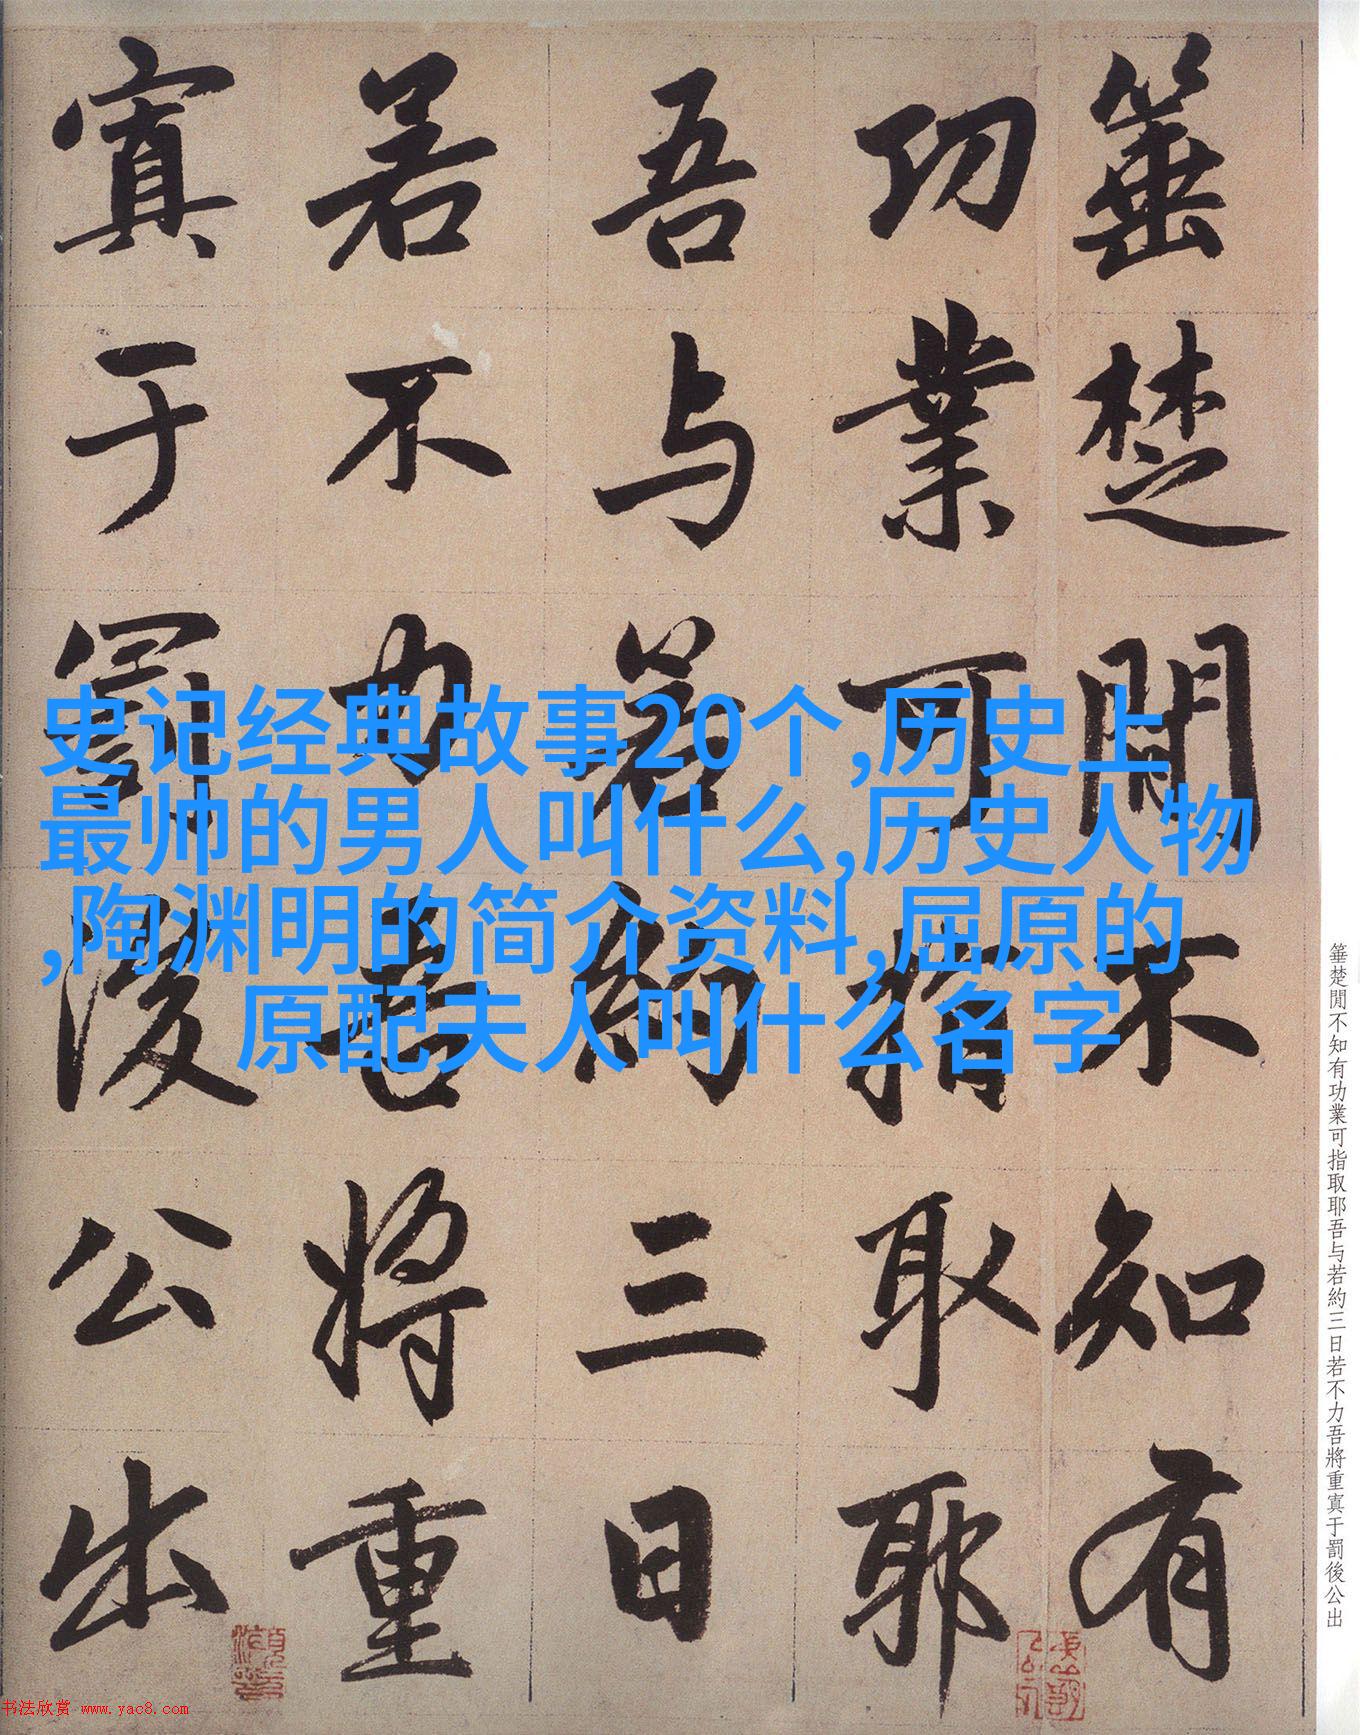 史记经典故事20个,历史上
最帅的男人叫什么,历史人物
,陶渊明的简介资料,屈原的
原配夫人叫什么名字
箠楚閒不知有
功業可指取耶
吾与若約三日
若不力吾將重
寘于罰後公出
箠楚閒不知有功業可指取耶吾与若約三日若不力吾將重寘于罰後公出
书法欣赏 www.yac8.com